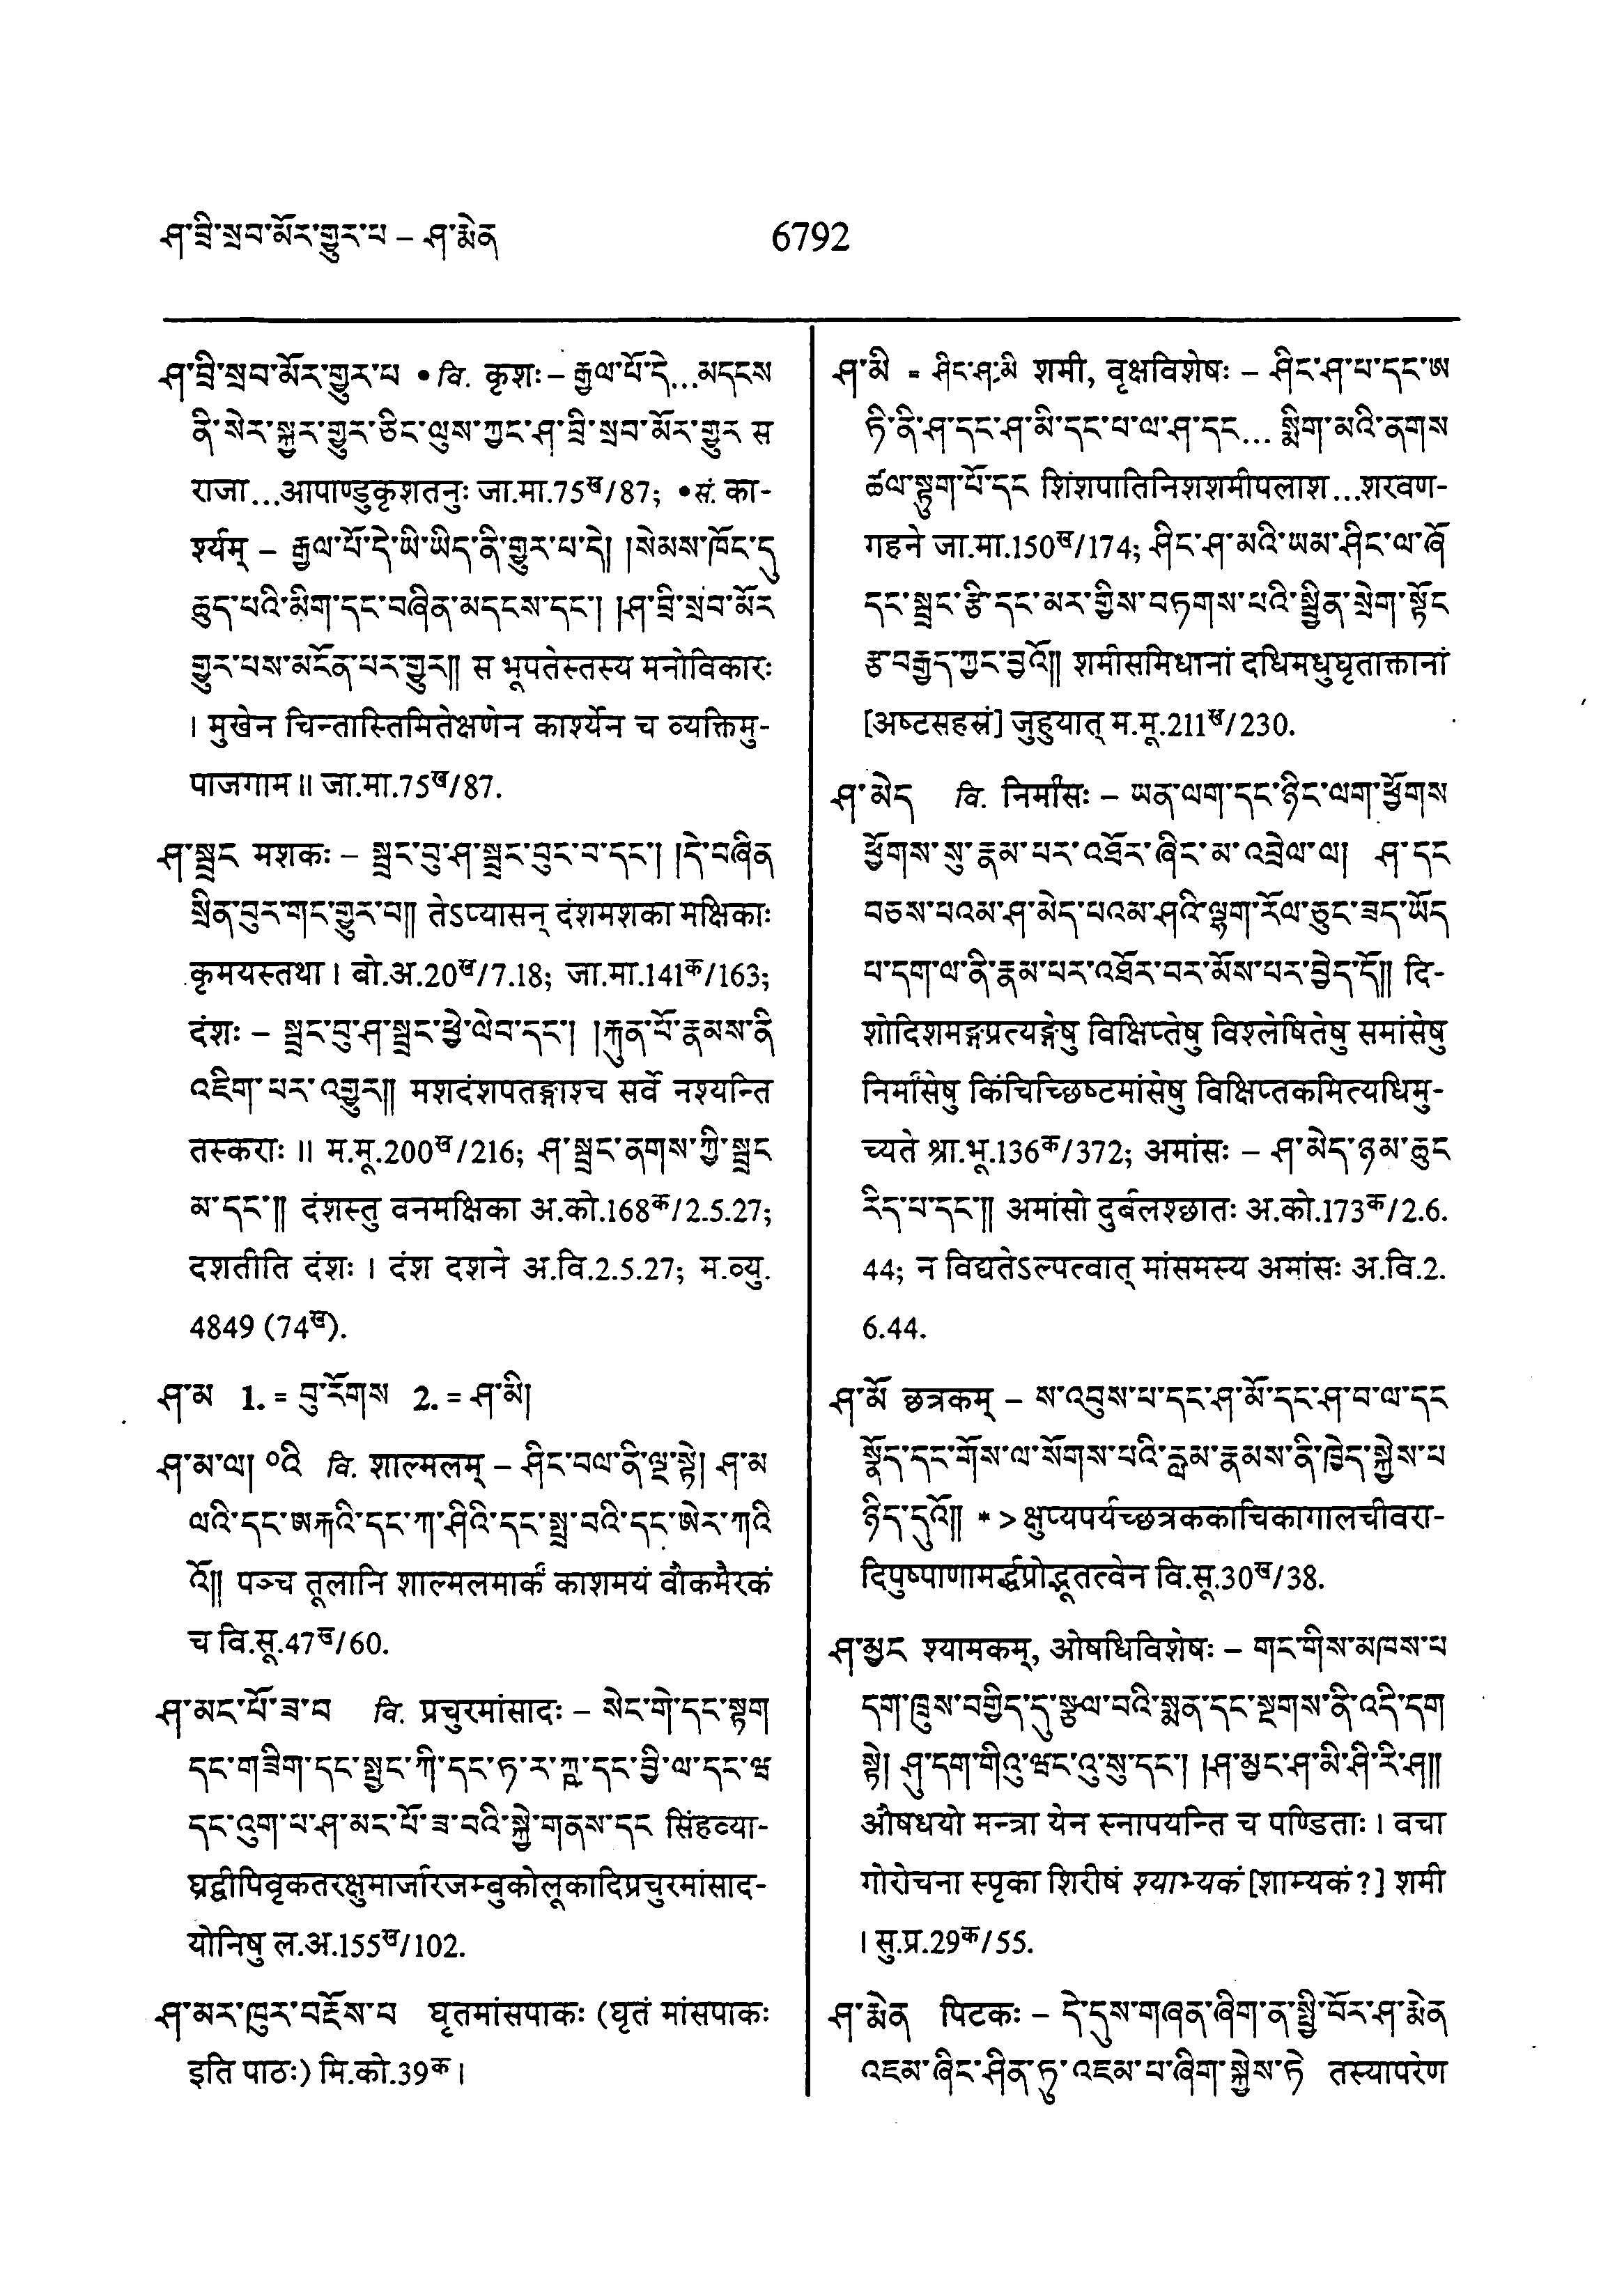 ཤ་བྲི་སྲབ་མོར་གྱུར་པ – ཤ་རྨེན
6792
ཤ་བྲི་སྲབ་མོར་གྱུར་པ •वि. कृशः – རྒྱལ་པོ་དེ...མདངས
ནི་སེར་སྐྱར་གྱུར་ཅིང་ལུས་ཀྱང་ཤ་བྲི་སྲབ་མོར་གྱུར स
राजा...आपाण्डुकृशतनुः जा.मा.75ख/87; •सं. का-
र्श्यम् – རྒྱལ་པོ་དེ་ཡི་ཡིད་ནི་གྱུར་པ་དེ། །སེམས་ཁོང་དུ
ཆུད་པའི་མིག་དང་བཞིན་མདངས་དང་། །ཤ་བྲི་སྲབ་མོར
གྱུར་པས་མངོན་པར་གྱུར།། स भूपतेस्तस्य मनोविकारः
। मुखेन चिन्तास्तिमितेक्षणेन कार्श्येन च व्यक्तिमु-
पाजगाम ॥ जा.मा.75ख/87.
ཤ་སྦྲང मशकः – སྦྲང་བུ་ཤ་སྦྲང་བུང་བ་དང་། །དེ་བཞིན
སྲིན་བུར་གང་གྱུར་བ།། तेऽप्यासन् दंशमशका मक्षिकाः
कृमयस्तथा । बो.अ.20ख/7.18; जा.मा.141क/163;
दंशः – སྦྲང་བུ་ཤ་སྦྲང་ཕྱེ་ལེབ་དང་། །རྐུན་པོ་རྣམས་ནི
འཇིག་པར་འགྱུར།། मशदंशपतङ्गाश्च सर्वे नश्यन्ति
तस्कराः ॥ म.मू.200ख/216; ཤ་སྦྲང་ནགས་ཀྱི་སྦྲང
མ་དང་།། दंशस्तु वनमक्षिका अ.को.168क/2.5.27;
दशतीति दंशः । दंश दशने अ.वि.2.5.27; म.व्यु.
4849 (74ख).
ཤ་མ 1. = བུ་རོགས 2. = ཤ་མི།
ཤ་མ་ལ། ०འི वि. शाल्मलम् – ཤིང་བལ་ནི་ལྔ་སྟེ། ཤ་མ
ལའི་དང་ཨརྐའི་དང་ཀ་ཤིའི་དང་སྤྲ་བའི་དང་ཨེར་ཀའི
འོ།། पञ्च तूलानि शाल्मलमार्कं काशमयं वौकमैरकं
च वि.सू.47ख/60.
ཤ་མང་པོ་ཟ་བ वि. प्रचुरमांसादः – སེང་གེ་དང་སྟག
དང་གཟིག་དང་སྤྱང་ཀི་དང་ཏ་ར་ཀྵ་དང་བྱི་ལ་དང་ཝ
དང་འུག་པ་ཤ་མང་པོ་ཟ་བའི་སྐྱེ་གནས་དང सिंहव्या-
घ्रद्वीपिवृकतरक्षुमार्जारजम्बुकोलूकादिप्रचुरमांसाद-
योनिषु ल.अ.155ख/102.
ཤ་མར་ཁུར་བརྔོས་པ घृतमांसपाकः (घृतं मांसपाकः
इति पाठः) मि.को.39क ।
ཤ་མི = ཤིང་ཤ་མི शमी, वृक्षविशेषः – ཤིང་ཤ་པ་དང་ཨ
ཏི་ནི་ཤ་དང་ཤ་མི་དང་པ་ལ་ཤ་དང... སྨིག་མའི་ནགས
ཚལ་སྟུག་པོ་དང शिंशपातिनिशशमीपलाश...शरवण-
गहने जा.मा.150ख/174; ཤིང་ཤ་མའི་ཡམ་ཤིང་ལ་ཞོ
དང་སྦྲང་རྩི་དང་མར་གྱིས་བཏགས་པའི་སྦྱིན་སྲེག་སྟོང
རྩ་བརྒྱད་ཀྱང་བྱའོ།། शमीसमिधानां दधिमधुघृताक्तानां
[अष्टसहस्रं] जुहुयात् म.मू.211ख/230.
ཤ་མེད वि. निर्मांसः – ཡན་ལག་དང་ཉིང་ལག་ཕྱོགས
ཕྱོགས་སུ་རྣམ་པར་འཐོར་ཞིང་མ་འབྲེལ་ལ། ཤ་དང
བཅས་པའམ་ཤ་མེད་པའམ་ཤའི་ལྷག་རོལ་ཅུང་ཟད་ཡོད
པ་དག་ལ་ནི་རྣམ་པར་འཐོར་བར་མོས་པར་བྱེད་དོ།། दि-
शोदिशमङ्गप्रत्यङ्गेषु विक्षिप्तेषु विश्लेषितेषु समांसेषु
निर्मांसेषु किंचिच्छिष्टमांसेषु विक्षिप्तकमित्यधिमु-
च्यते श्रा.भू.136क/372; अमांसः – ཤ་མེད་ཉམ་ཆུང
རིད་པ་དང་།། अमांसो दुर्बलश्छातः अ.को.173क/2.6.
44; न विद्यतेऽल्पत्वात् मांसमस्य अमांसः अ.वि.2.
6.44.
ཤ་མོ छत्रकम् – ས་འབུས་པ་དང་ཤ་མོ་དང་ཤ་བ་ལ་དང
སྣོད་དང་གོས་ལ་སོགས་པའི་རླམ་རྣམས་ནི་ཁྱེད་སྐྱེས་པ
ཉིད་དུའོ།། *> क्षुप्यपर्यच्छत्रककाचिकागालचीवरा-
दिपुष्पाणामर्द्धप्रोद्भूतत्वेन वि.सू.30ख/38.
ཤ་མྱང श्यामकम्, ओषधिविशेषः – གང་གིས་མཁས་པ
དག་ཁྲུས་བགྱིད་དུ་སྩལ་བའི་སྨན་དང་སྔགས་ནི་འདི་དག
སྟེ། ཤུ་དག་གིའུ་ཝང་འུ་སུ་དང་། །ཤ་མྱང་ཤ་མི་ཤི་རི་ཤ།།
औषधयो मन्त्रा येन स्नापयन्ति च पण्डिताः । वचा
गोरोचना स्पृका शिरीषं श्याभ्यकं [शाम्यकं ?] शमी
। सु.प्र.29क/55.
ཤ་རྨེན पिटकः – དེ་དུས་གཞན་ཞིག་ན་སྤྱི་བོར་ཤ་རྨེན
འཇམ་ཞིང་ཤིན་ཏུ་འཇམ་པ་ཞིག་སྐྱེས་ཏེ तस्यापरेण